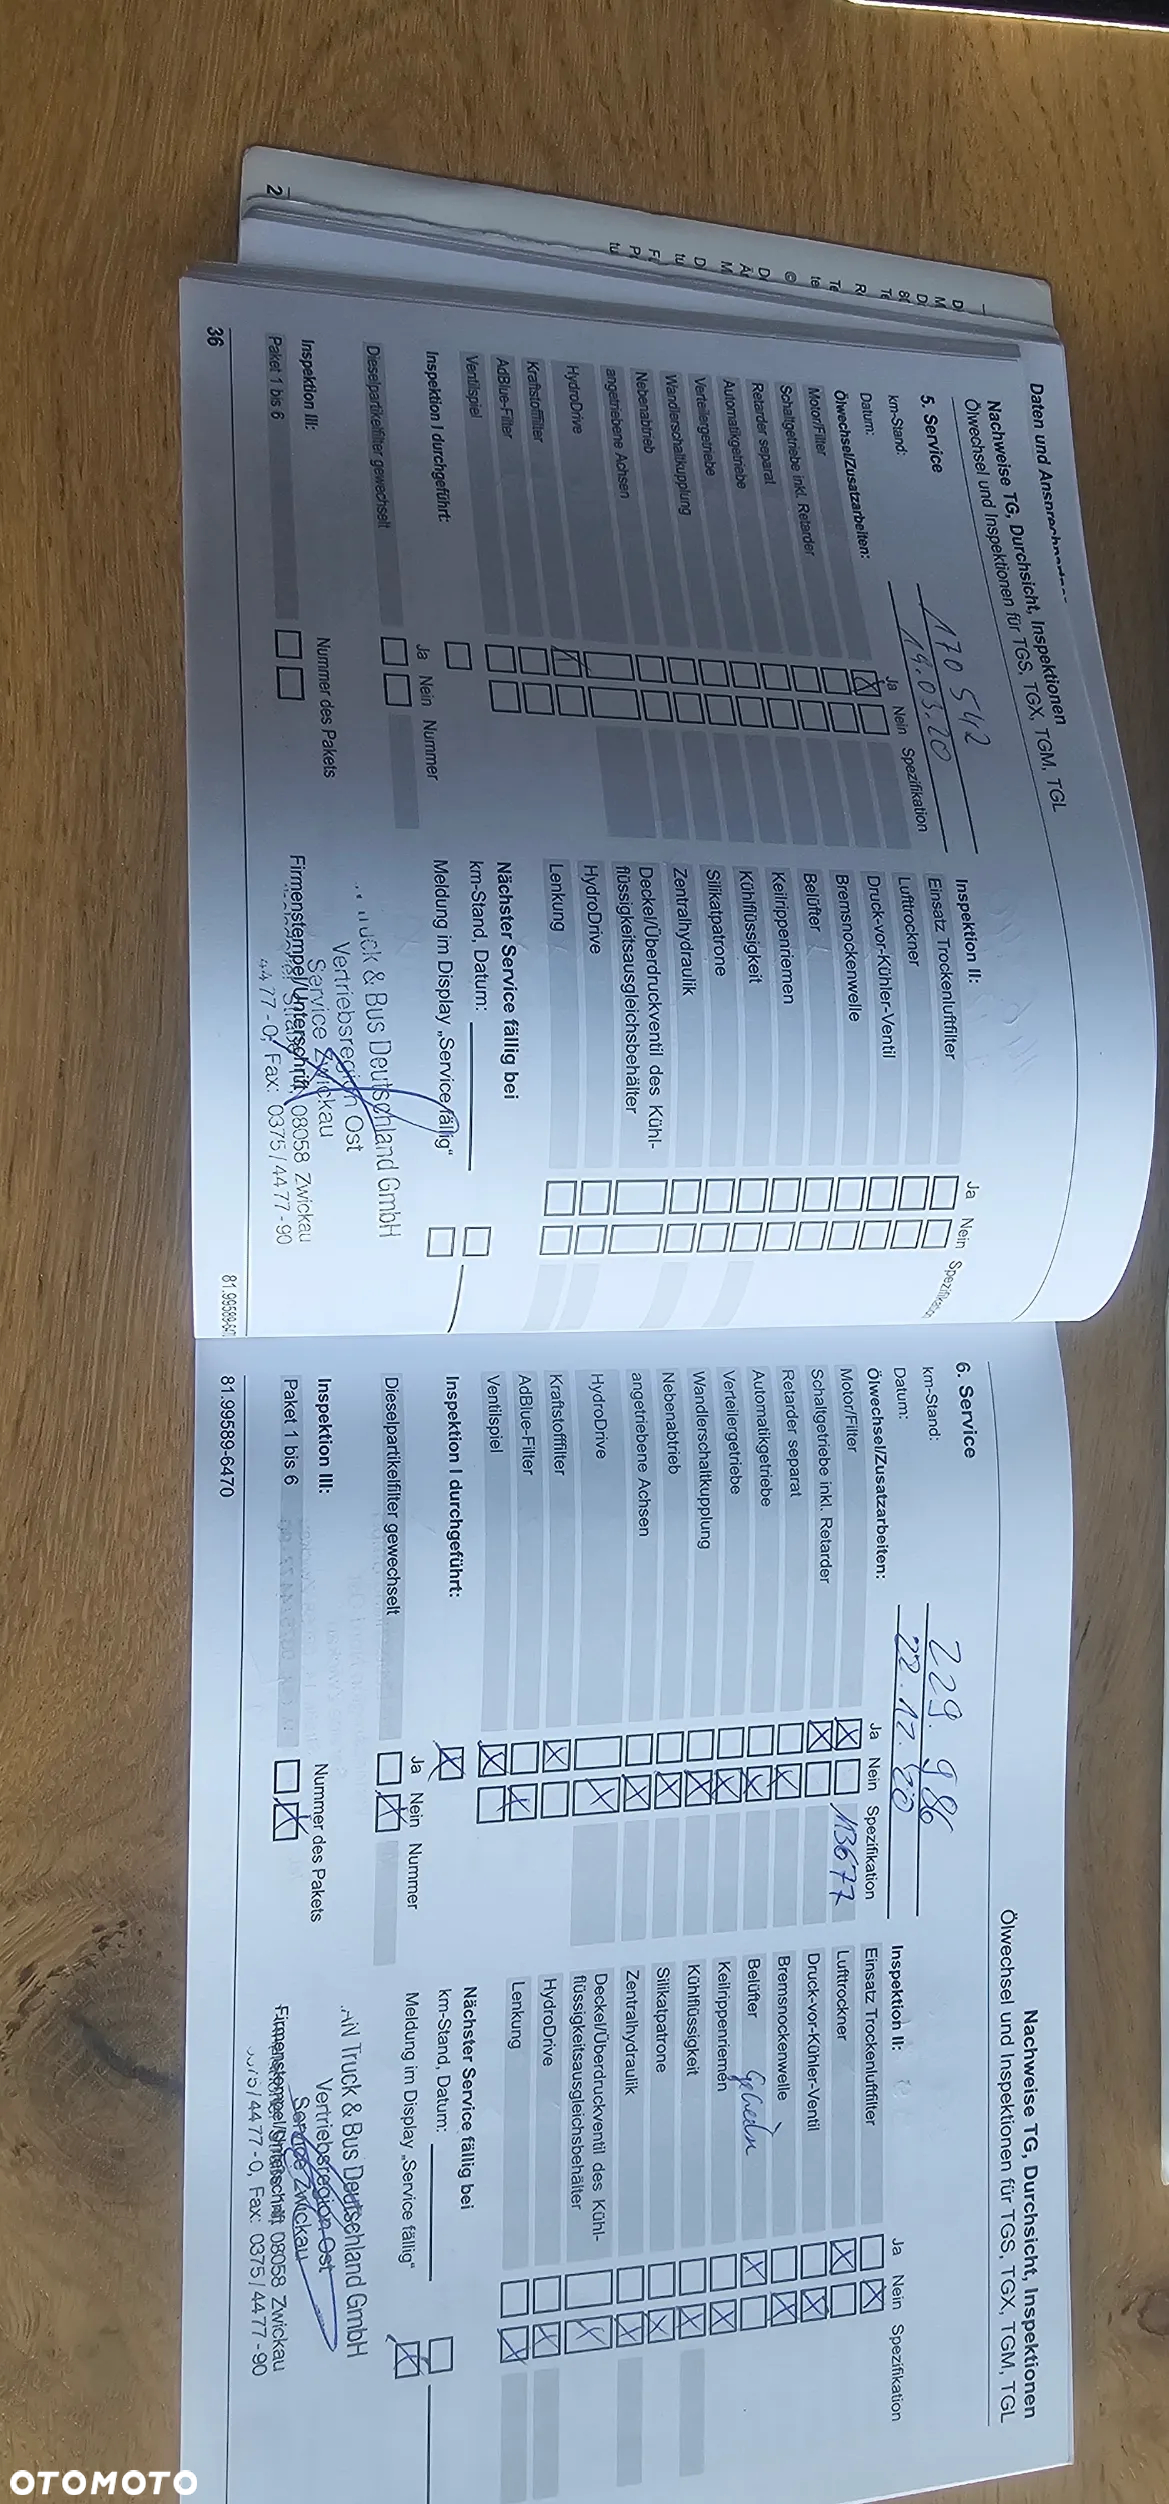 Daten und
Nachweise TG, Durchsicht, Inspektionen
Ölwechsel und Inspektionen für TGS, TGX, TGM, TGL
5. Service
km-Stand: 170 542
Datum: 19.03.20
Ölwechsel/Zusatzarbeiten:
Ja Nein Spezifikation
Motor/Filter
Schaltgetriebe inkl. Retarder
Retarder separat
Automatikgetriebe
Verteilergetriebe
Wandlerschaltkupplung
Nebenabtrieb
angetriebene Achsen
HydroDrive
Kraftstofffilter
AdBlue-Filter
Ventilspiel
Inspektion I durchgeführt:
Ja Nein Nummer
Dieselpartikelfilter gewechselt
Inspektion III:
Nummer des Pakets
Paket 1 bis 6
Inspektion II:
Ja Nein Spezifikation
Einsatz Trockenluftfilter
Lufttrockner
Druck-vor-Kühler-Ventil
Bremsnockenwelle
Belüfter
Keilrippenriemen
Kühlflüssigkeit
Silikatpatrone
Zentralhydraulik
Deckel/Überdruckventil des Kühl-
flüssigkeitsausgleichsbehälter
HydroDrive
Lenkung
Nächster Service fällig bei
km-Stand, Datum:
Meldung im Display „Service fällig“
Truck & Bus Deutschland GmbH
Vertriebsregion Ost
Service Zwickau
Firmenstempel/Unterschrift
08058 Zwickau
4477-0, Fax: 0375/4477-90
36
Nachweise TG, Durchsicht, Inspektionen
Ölwechsel und Inspektionen für TGS, TGX, TGM, TGL
6. Service
km-Stand: 229.986
Datum: 22.12.20
Ölwechsel/Zusatzarbeiten:
Ja Nein Spezifikation
Motor/Filter M3677
Schaltgetriebe inkl. Retarder
Retarder separat
Automatikgetriebe
Verteilergetriebe
Wandlerschaltkupplung
Nebenabtrieb
angetriebene Achsen
HydroDrive
Kraftstofffilter
AdBlue-Filter
Ventilspiel
Inspektion I durchgeführt:
Ja Nein Nummer
Dieselpartikelfilter gewechselt
Inspektion III:
Nummer des Pakets
Paket 1 bis 6
Inspektion II:
Ja Nein Spezifikation
Einsatz Trockenluftfilter
Lufttrockner
Druck-vor-Kühler-Ventil
Bremsnockenwelle
Belüfter
Keilrippenriemen
Kühlflüssigkeit
Silikatpatrone
Zentralhydraulik
Deckel/Überdruckventil des Kühl-
flüssigkeitsausgleichsbehälter
HydroDrive
Lenkung
Nächster Service fällig bei
km-Stand, Datum:
Meldung im Display „Service fällig“
Truck & Bus Deutschland GmbH
Vertriebsregion Ost
Service Zwickau
Firmenstempel/Unterschrift
08058 Zwickau
4477-0, Fax: 0375/4477-90
81.99589-6470
OTOMOTO